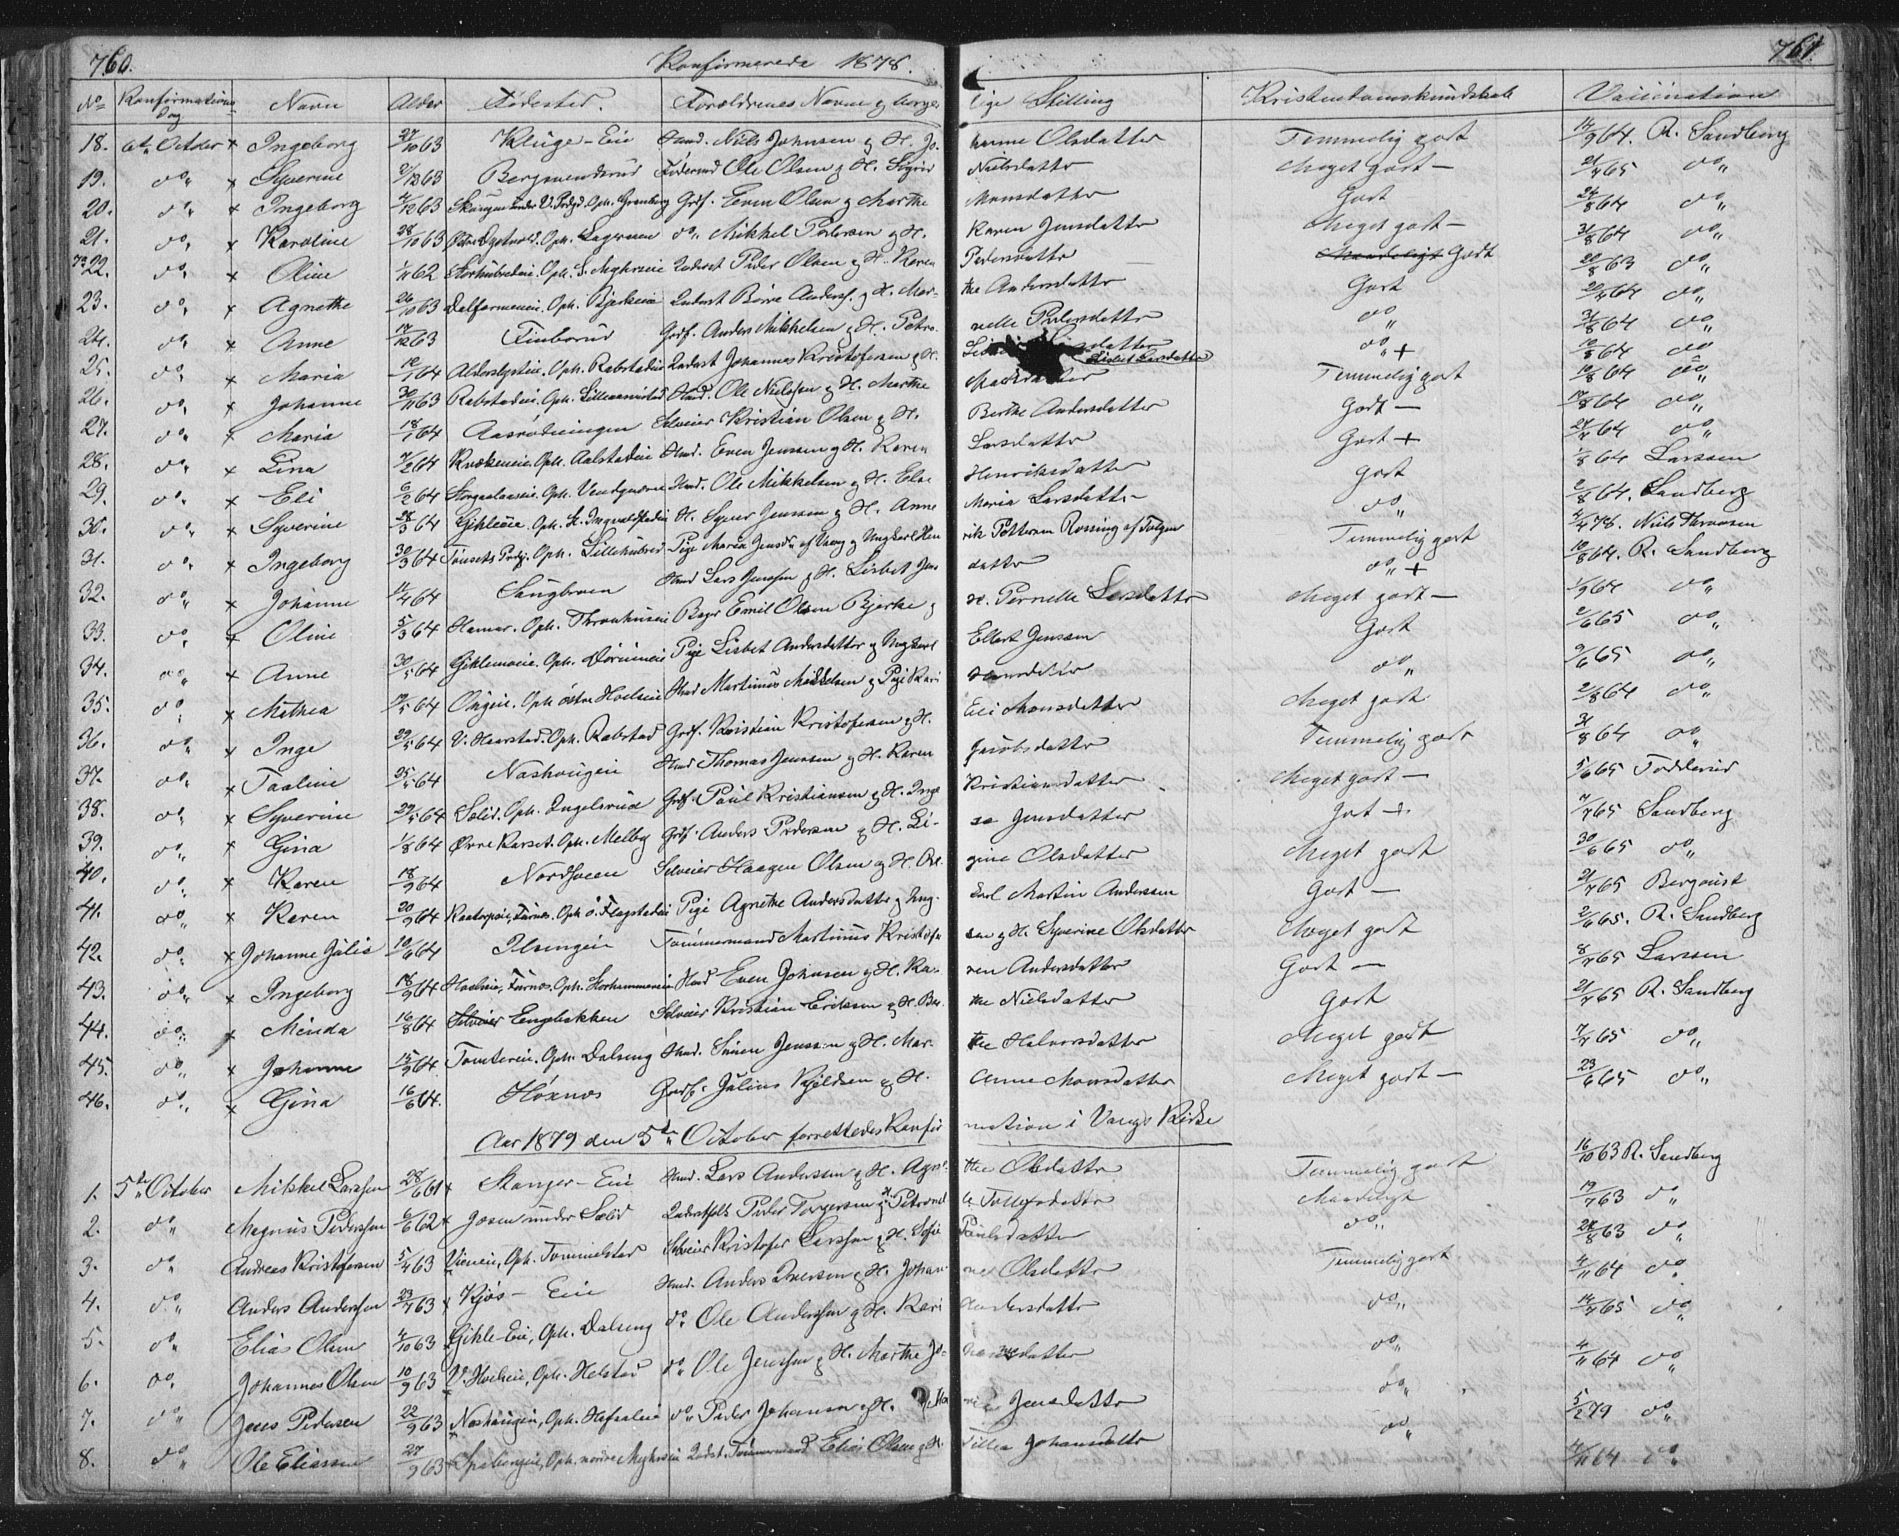 760. Konfirmerede 1878. 761.
No Konfirmations Dag Navn Alder Fødested. Forældrenes Navne og borger lige Stilling Kristendomskundskab Vaccination
18. 6te October x Ingeborg 27/10 63 Kluge-Eie Husmd. Niels Johnsen og H. Jo- hanne Olsdatter Temmelig godt 14/9 64. R. Sandberg
19. do x Syverine 2/12 63 Bergmendsrud Føderaad Ole Olsen og H. Sigrid Nielsdatter Meget godt – 21/4 65 do
20. do x Ingeborg 4/12 63 Oph. Grønberg Grdf. Even Olsen og Marthe Monsdatter Godt 24/8 64 do
21. do x Karoline 28/10 63 Oph. do Mikkel Pedersen og H. Karen Jensdatter Meget godt – 31/8 64 do
22. do x Oline 1/11 62 Inderst Peder Olsen og H. Karen Pedersdatter Maadeligt Godt 20/8 63 do
23. do x Agnethe 26/10 63 Oph. Bjerkeie Inderst Børre Anders. og H. Mar- the Andersdatter Godt 20/4 64 do
24. do x Anne 14/12 63 Finborud Grdf. Anders Mikkelsen og H. Petro- nelle Pedersdatter do 31/8 64 do
25. do x Maria 12/1 64 Oph. Rabstadeie Inderst Johannes Kristofersen og H. Lisbet Larsdatter do + 10/8 64 do
26. do x Johanne 30/11 63 Rabstadeie. Oph. Husmd. Ole Nielsen og H. Marthe Temmelig godt 10/8 64 do
27. do x Maria 18/1 64 Aasrotningen Selveier Kristian Olsen og H. Berthe Andersdatter Godt – 17/8 64 do
28. do x Lina 7/2 64 Oph. Aalstadeie Husmd. Even Jensen og H. Karen Larsdatter Godt + 24/4 64 do
29. do x Eli 6/2 64 Oph. Husmd. Ole Mikkelsen og H. Else Henriksdatter Godt 1/8 64 Larssen
30. do x Syverine 28/3 64 Gihleeie. Oph. H. Syver Jenssen og H. Anne Maria Larsdatter do 2/8 64. Sandberg
31. do x Ingeborg 30/3 64 Oph. Lillehubred Pige Maria af Vang og Ungkarl Hen rik af Tolgen Temmelig godt 4/4 78. Niels Thronsen
32. do x Johanne 11/4 64 Sangbroen Husmd Lars Jenssen og H. Lisbet Jens datter do + 10/8 64. R. Sandberg
33. do x Oline 5/3 64 Hamar. Oph. Bager Emil Olsen Bjerke og H. Pernelle Larsdatter Meget godt – 1/9 64 do
34. do x Anne 30/5 64 Gihlemoeie. Oph. Pige Lisbet Andersdatter og Ungkarl Ellert Jenssen Godt 2/6 65 do
35. do x Mathea 19/5 64 Oph. østre Hoelseie Husmd Martinus Mikkelsen og Pige Kari do 9/6 65 do
36. do x Inge 29/5 64 V. Haarstad. Oph. Rabstad Grdf. Kristian Kristofersen og H. Eli Monsdatter Meget godt 2/8 64 do
37. do x Paaline 25/4 64 Nashougeie Husmd Thomas Jenssen og H. Karen Jacobsdatter Temmelig godt 31/8 64 do
38. do x Syverine 29/5 64 Sælid. Oph. Ingelsrud Grdf. Paul Kristiansen og H. Inge Kristiansdatter Meget godt – 5/6 65 Fodderud
39. do x Gina 1/8 64 Øvre Karset. Oph. Melby Grdf. Anders Pedersen og H. Li- se Jensdatter Godt + 7/7 65 Sandberg
40. do x Karen 18/9 64 Nordsveen Selveier Haagen Olsen og H. Re- gine Olsdatter Meget godt 30/6 65 do
41. do x Karen 20/9 64 Furnes. Oph. ø. Flagstadeie Pige Agnethe Andersdatter og Ung- karl Martin Anderssen Godt – 21/4 65 Bergquist
42. do x Johanne Julie 10/6 64 Ilsengeie Tømmermand Martinus Kristofer sen og H. Syverine Olsdatter Meget godt 2/6 65. R. Sandberg
43. do x Ingeborg 18/9 64 Hoelseie, Furnes. Oph. Storhammereie Husmd Even Johnsen og H. Ka- ren Andersdatter Godt – 8/7 65 Larssen
44. do x Minda 16/8 64 Selveier Engebakken Selveier Kristian Eriksen og H. Ber the Nielsdatter Godt 21/4 65 R. Sandberg
45. do x Johanne 15/9 64 Tomtereie. Oph. Dalseng Husmd. Simen Jenssen og H. Mar- the Halvorsdatter Meget godt 7/7 65 do
46. do x Gina 16/6 64. Høsnæs Grdf. Julius Kjeldsen og H. Anne Monsdatter Meget godt – 23/6 65 do
Aar 1879 den 5te October forrettedes Konfir mation i Vangs Kirke
1. 5te October Mikkel Larssen 28/6 61 x Stanger-Eie Husmd. Lars Anderssen og H. Agne- the Olsdatter Temmelig godt 16/10 63 R. Sandberg
2. do Magnus Pederssen 6/6 62 x Josen under Sælid Inderstfolk Peder Torgersen og H. Petronel le Tollefsdatter Maadeligt 19/7 63 do
3. do Andreas Kristofersen 5/4 63 x Oph. Tommelstad Selveier Kristofer Larssen og H. Sofie Paulsdatter do 28/8 63 do
4. do Anders Anderssen 23/7 63 x Kjos-Eie Husmd. Anders Iversen og H. Johan- ne Olsdatter Temmelig godt 4/11 64 do
5. do Elias Olsen 4/10 63 x Gihle-Eie, Oph. Dalseng do Ole Anderssen og H. Kari Andersdatter do 14/7 65 do
6. do Johannes Olsen 10/9 63 x V. Hoelseie, Oph. Helstad do Ole Jenssen og H. Marthe Jo- hannesdatter do 4/11 64 do
7. do Jens Pedersen 22/9 63 x Nashougeie, Oph. Hofsaleie do Peder Johansen og H. Ma rie Jensdatter do 5/2 79 do
8. do Ole Eliassen 27/9 63 x Oph. nordre Inderst. Tømmermand Elias Olsen og H. Tillea Johansdatter do 4/11 64 do